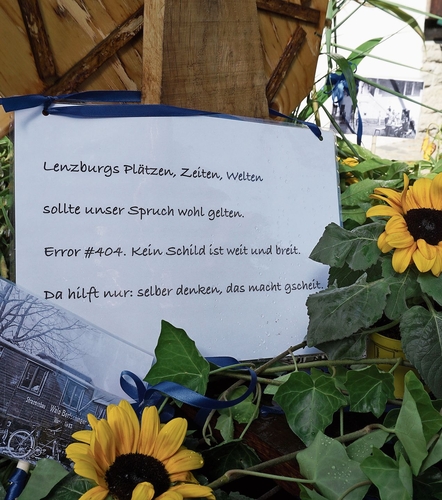 Lenzburgs Plätzen, Zeiten, Welten
sollte unser Spruch wohl gelten.
Error #404. Kein Schild ist weit und breit.
Da hilft nur: selber denken, das macht gscheit.